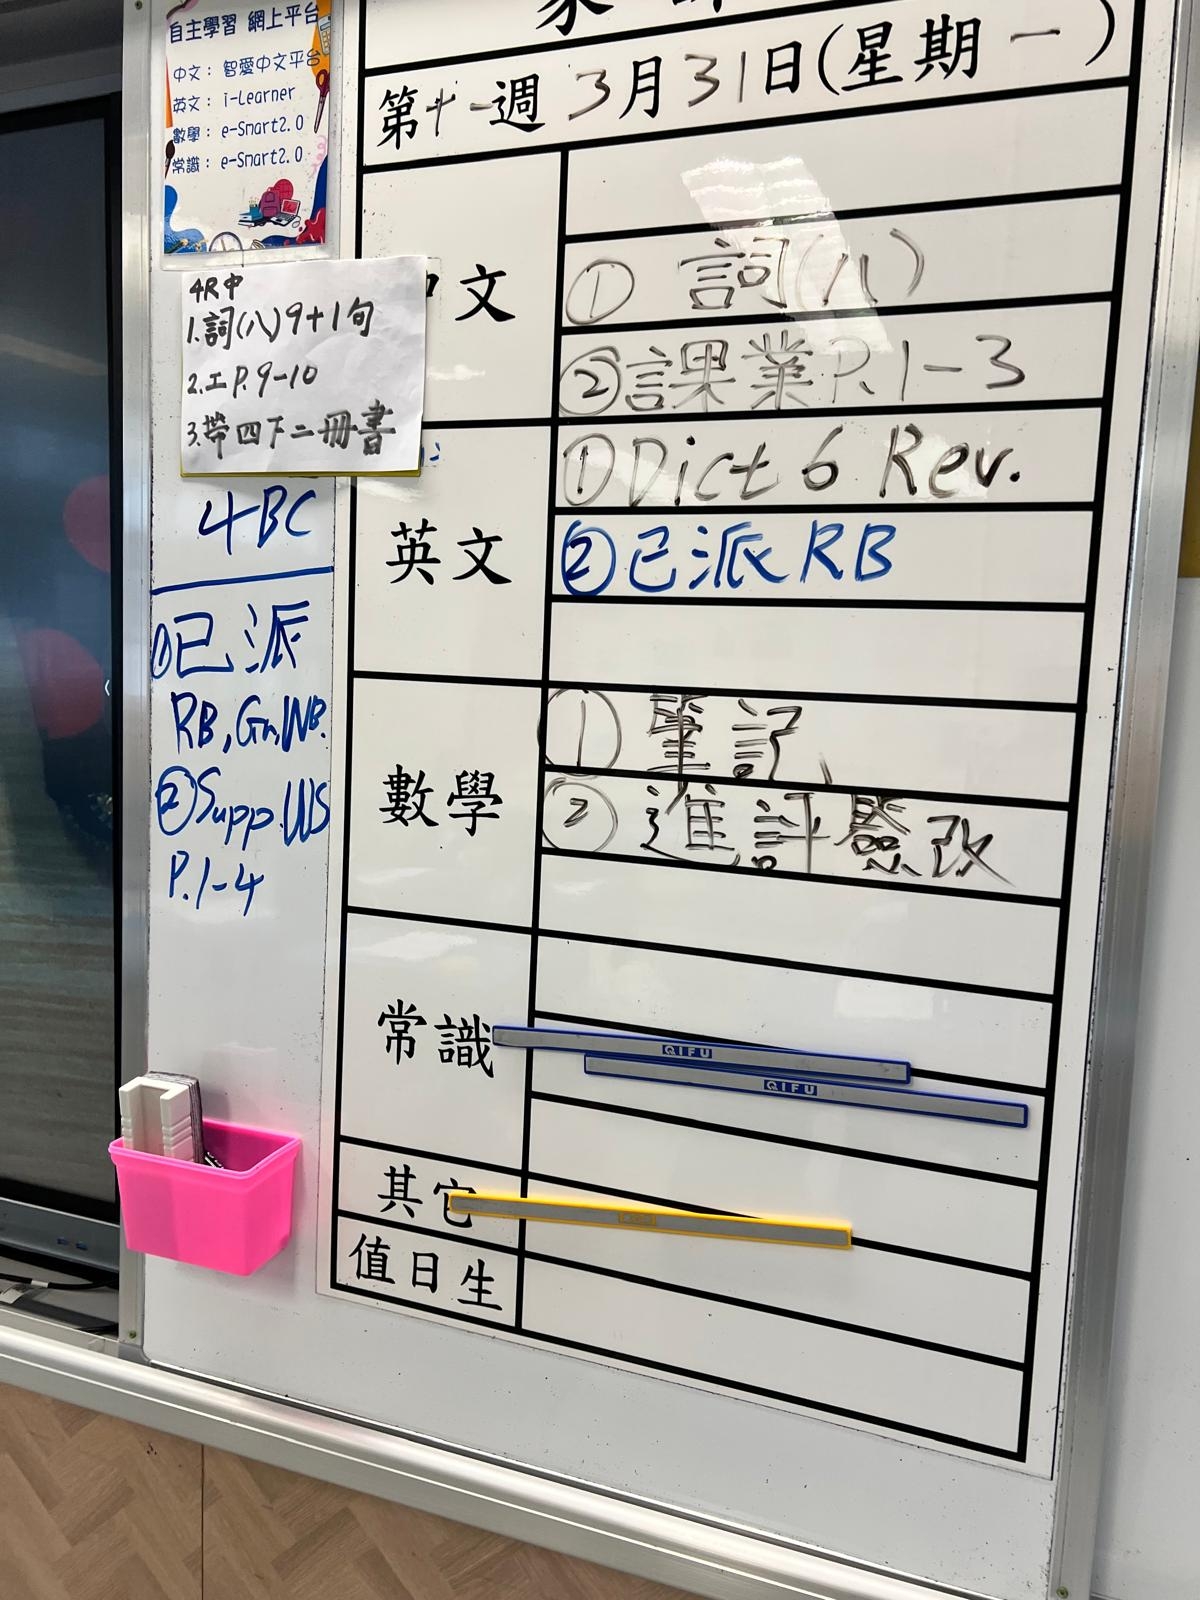 自主學習 網上平台
中文： 智愛中文平台
英文： i-Learner
數學： e-Smart2.0
常識： e-Smart2.0
第十一週 3月31日(星期一)
4R中
1.詞(八)9+1句
2.工P.9-10
3.帶四下二冊書
文
① 詞(八)
②課業P.1-3
英文
①Dict 6 Rev.
②已派RB
4BC
①已派
RB, Gr, WB.
②Supp.WS
P.1-4
數學
①筆記
②進評簽改
常識
QIFU
QIFU
其它
值日生